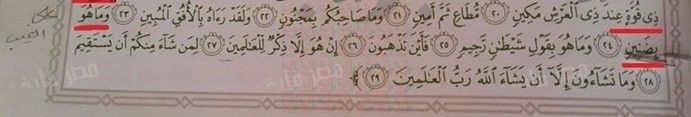 ذِى قُوَّةٍ عِندَ ذِى ٱلْعَرْشِ مَكِينٍ ٢٠ مُّطَاعٍ ثَمَّ أَمِينٍ ٢١ وَمَا صَاحِبُكُم بِمَجْنُونٍ ٢٢ وَلَقَدْ رَءَاهُ بِٱلْأُفُقِ ٱلْمُبِينِ ٢٣ وَمَا هُوَ
على الغيب
بِضَنِينٍ ٢٤ وَمَا هُوَ بِقَوْلِ شَيْطَٰنٍ رَّجِيمٍ ٢٥ فَأَيْنَ تَذْهَبُونَ ٢٦ إِنْ هُوَ إِلَّا ذِكْرٌ لِّلْعَٰلَمِينَ ٢٧ لِمَن شَآءَ مِنكُمْ أَن يَسْتَقِيمَ
٢٨ وَمَا تَشَآءُونَ إِلَّآ أَن يَشَآءَ ٱللَّهُ رَبُّ ٱلْعَٰلَمِينَ ٢٩